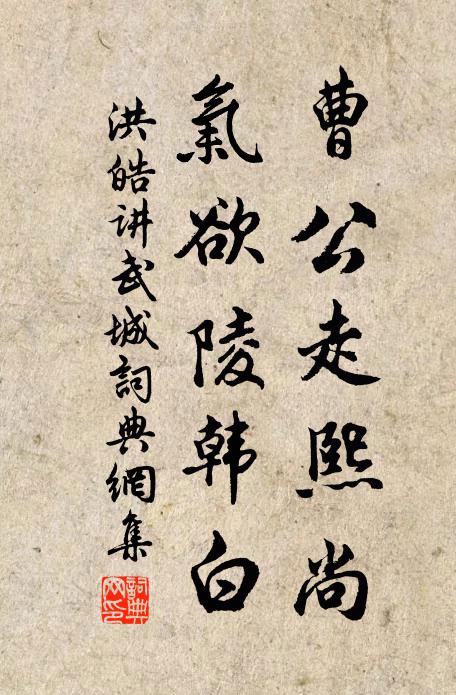 曹公走熙尚
氣欲陵韩白
洪皓讲武城詞典網集
詞典网印